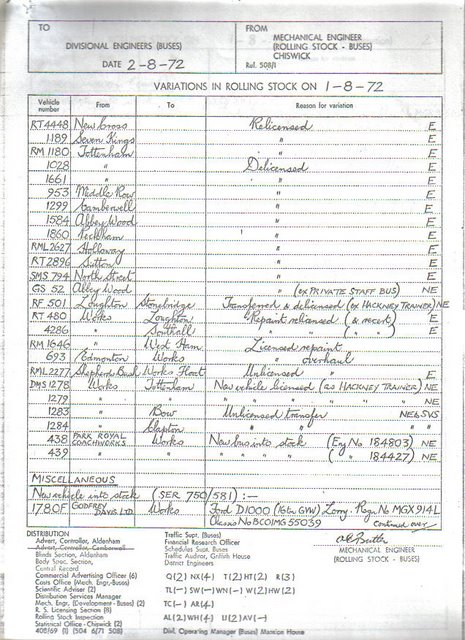 TO
DIVISIONAL ENGINEERS (BUSES)
DATE 2-8-72
FROM
MECHANICAL ENGINEER
(ROLLING STOCK - BUSES)
CHISWICK
Ref. 508/1
VARIATIONS IN ROLLING STOCK ON 1-8-72
Vehicle number From To Reason for variation
RT4448 New Cross Relicensed E
1189 Seven Kings " E
RM 1180 Tottenham " E
1028 " Delicensed E
1661 " " E
953 Middle Row " E
1299 Camberwell " E
1584 Abbey Wood " E
1860 Peckham " E
RML2627 Holloway " E
RT2896 Sutton " E
SMS 794 North Street " E
GS 52 Abbey Wood " (ex PRIVATE STAFF BUS) NE
RF 501 Loughton Stonebridge Transferred & delicensed (ex HACKNEY TRAINER) NE
RT 480 Works Loughton Repaint relicensed (& recert) E
4286 " Southall " ( " ) E
RM 1646 " West Ham Licensed repaint
693 Edmonton Works " overhaul
RML2277 Shepherds Bush Works Float Unlicensed " E
DMS1278 Works Tottenham New vehicle licensed (as HACKNEY TRAINER) NE
1279 " " " " " " " NE
1283 " Bow Unlicensed transfer NE to SVS
1284 " Clapton " "
438 PARK ROYAL COACHWORKS Works New bus into stock (Eng No 184803) NE
439 " " " ( " 184427) NE
MISCELLANEOUS
New vehicle into stock (SER 750/581) :-
1780F GODFREY DAVIS LTD. Works Ford D1000 (16tn GVW) Lorry. Regn. No MGX 914L
Chassis No BCOIMG 55039
continued over
DISTRIBUTION
Advert. Controller, Aldenham
Advert. Controller, Camberwell
Blinds Section, Aldenham
Body Spec. Section,
Central Record
Commercial Advertising Officer (6)
Costs Office (Mech. Engr.-Buses)
Scientific Adviser (2)
Development Manager
Mech. Engr. (Development - Buses) (2)
R. S. Licensing Section (8)
Rolling Stock Inspection
Statistical Office - Chiswick (2)
408/69 (1) (504 6/71 508)
Traffic Supt. (Buses)
Financial Research Officer
Schedules Supt. Buses
Traffic Auditor, Griffith House
District Engineers
Q(2) NX(4) T(2) HT(2) R(3)
TL(-) SW(-) WN(-) W(2) HW(2)
TC(-) AR(4)
AL(2) WH(4) U(2) AV(-)
Divl. Operating Manager (Buses) Mansion House
MECHANICAL ENGINEER
(ROLLING STOCK - BUSES)